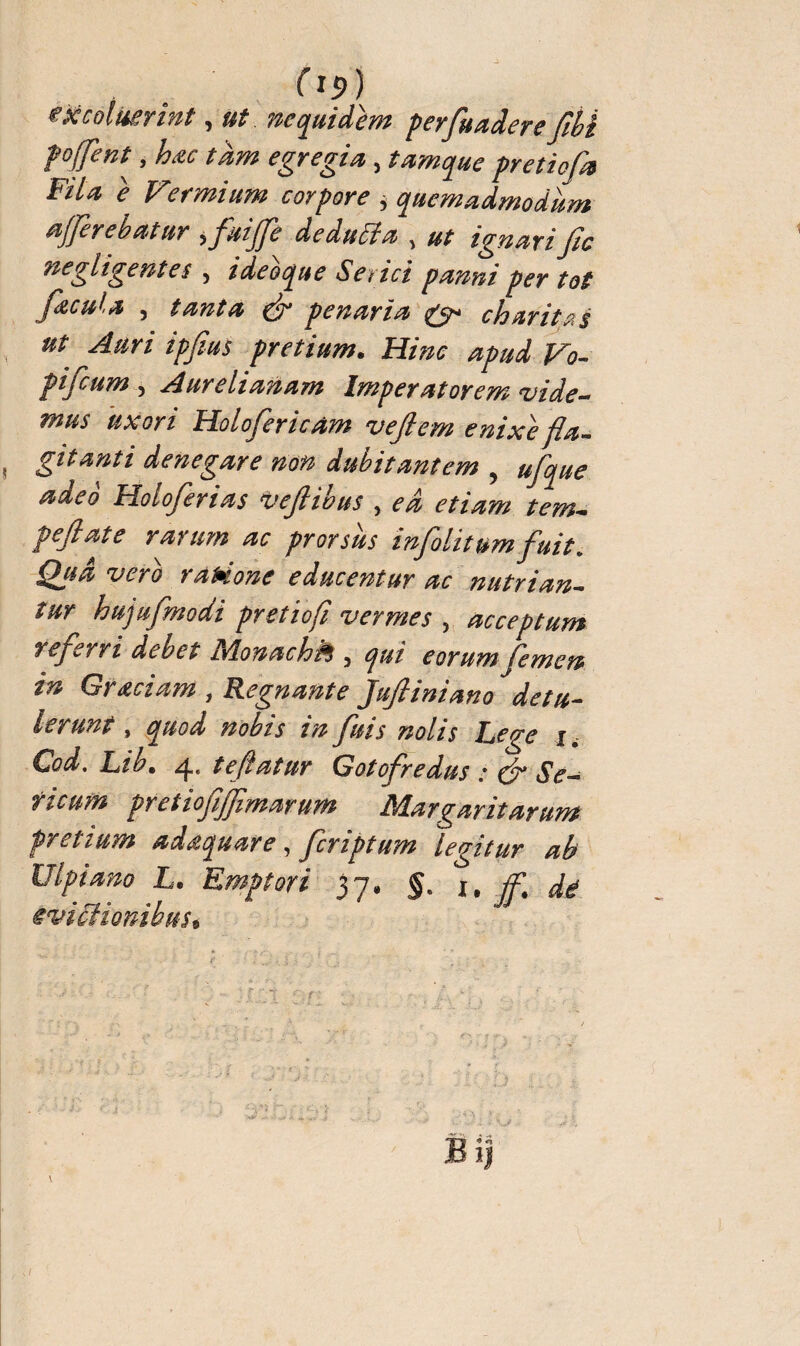 (19)
excoluerint, ut nequidem persuadere sibi
possent, hæc tàm egregia, tamque pretiosa
Fila è Vermium corpore, quemadmodùm
asserebatur, fuisse deducta, ut ignari sic
negligentes, ideòque Serici panni per tot
sæcula, tanta & penaria & charitas
ut Auri ipsius pretium. Hinc apud Vo-
piscum, Aurelianam Imperatorem vide-
mus uxori Holosericam vestem enixè fla-
gitanti denegare non dubitantem, usque
adeò Holoserias vestibus, eâ etiam tem-
pestate rarum ac prorsùs insolitum fuit.
Quâ verò ratione educentur ac nutrian-
tur hujusmodi pretiosi vermes, acceptum
referri debet Monachis, qui eorum semen
in Græciam, Regnante Justiniano detu-
lerunt, quod nobis in suis nolis Lege 1.
Cod. Lib. 4. testatur Gotofredus: & Se-
ricum pretiosissimarum Margaritarum
pretium adæquare, scriptum legitur ab
Ulpiano L. Emptori 37. §. 1. ff. de
evictionibus.
B ij